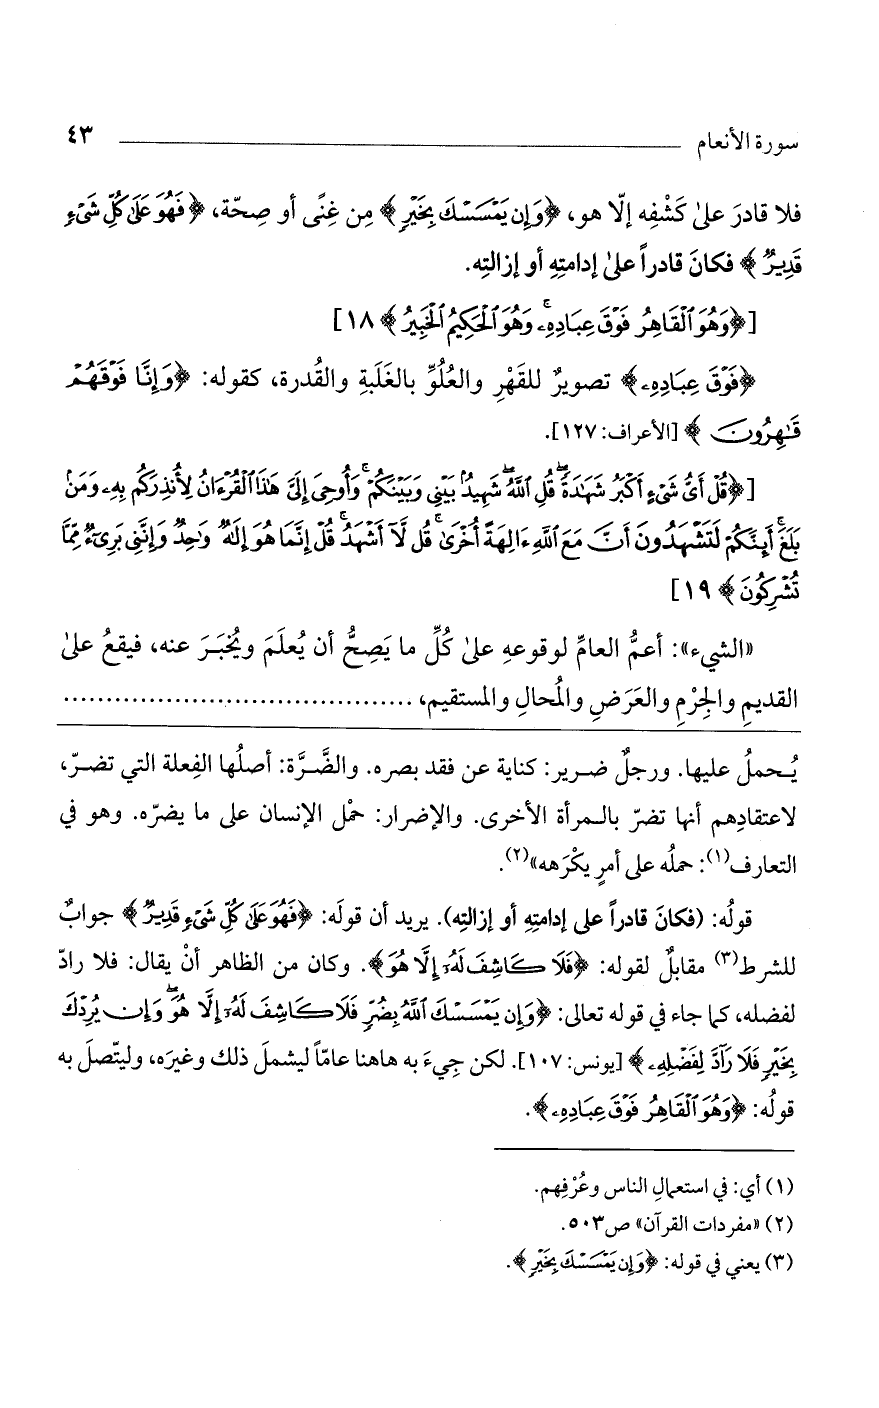 سورة الأنعام ٤٣
فلا قادرَ علىٰ كَشْفِه إلّا هو، ﴿وَإِن يَمْسَسْكَ بِخَيْرٍ﴾ مِن غِنًى أو صِحّة، ﴿فَهُوَ عَلَىٰ كُلِّ شَىْءٍ
قَدِيرٌ﴾ فكانَ قادراً علىٰ إدامتِهِ أو إزالتِه.
[﴿وَهُوَ ٱلْقَاهِرُ فَوْقَ عِبَادِهِۦ ۚ وَهُوَ ٱلْحَكِيمُ ٱلْخَبِيرُ﴾ ١٨]
﴿فَوْقَ عِبَادِهِۦ﴾ تصويرٌ للقَهْرِ والعُلُوِّ بالغَلَبةِ والقُدرة، كقوله: ﴿وَإِنَّا فَوْقَهُمْ
قَٰهِرُونَ﴾ [الأعراف: ١٢٧].
[﴿قُلْ أَىُّ شَىْءٍ أَكْبَرُ شَهَٰدَةً ۖ قُلِ ٱللَّهُ ۖ شَهِيدٌۢ بَيْنِى وَبَيْنَكُمْ ۚ وَأُوحِىَ إِلَىَّ هَٰذَا ٱلْقُرْءَانُ لِأُنذِرَكُم بِهِۦ وَمَنۢ
بَلَغَ ۚ أَئِنَّكُمْ لَتَشْهَدُونَ أَنَّ مَعَ ٱللَّهِ ءَالِهَةً أُخْرَىٰ ۚ قُل لَّآ أَشْهَدُ ۚ قُلْ إِنَّمَا هُوَ إِلَٰهٌ وَٰحِدٌ وَإِنَّنِى بَرِىٓءٌ مِّمَّا
تُشْرِكُونَ﴾ ١٩]
«الشيء»: أعمُّ العامِّ لوقوعهِ علىٰ كُلِّ ما يَصِحُّ أن يُعلَمَ ويُخبَرَ عنه، فيقعُ علىٰ
القديمِ والجِرْمِ والعَرَضِ والمُحالِ والمستقيم، ........................................
يُحملُ عليها. ورجلٌ ضرير: كناية عن فقد بصره. والضَّرَّة: أصلُها الفِعلة التي تضرّ،
لاعتقادِهم أنها تضرّ بالمرأة الأخرى. والإضرار: حمْل الإنسان على ما يضرّه. وهو في
التعارف(١): حملُه على أمرٍ يكْرَهه»(٢).
قولُه: (فكانَ قادراً على إدامتِهِ أو إزالتِه). يريد أن قولَه: ﴿فَهُوَ عَلَىٰ كُلِّ شَىْءٍ قَدِيرٌ﴾ جوابٌ
للشرط(٣) مقابلٌ لقوله: ﴿فَلَا كَاشِفَ لَهُۥٓ إِلَّا هُوَ﴾. وكان من الظاهر أنْ يقال: فلا رادّ
لفضله، كما جاء في قوله تعالى: ﴿وَإِن يَمْسَسْكَ ٱللَّهُ بِضُرٍّ فَلَا كَاشِفَ لَهُۥٓ إِلَّا هُوَ ۖ وَإِن يُرِدْكَ
بِخَيْرٍ فَلَا رَآدَّ لِفَضْلِهِۦ﴾ [يونس: ١٠٧]. لكن جِيءَ به هاهنا عامّاً ليشملَ ذلك وغيرَه، وليتّصلَ به
قولُه: ﴿وَهُوَ ٱلْقَاهِرُ فَوْقَ عِبَادِهِۦ﴾.
(١) أي: في استعمالِ الناس وعُرْفِهم.
(٢) «مفردات القرآن» ص٥٠٣.
(٣) يعني في قوله: ﴿وَإِن يَمْسَسْكَ بِخَيْرٍ﴾.